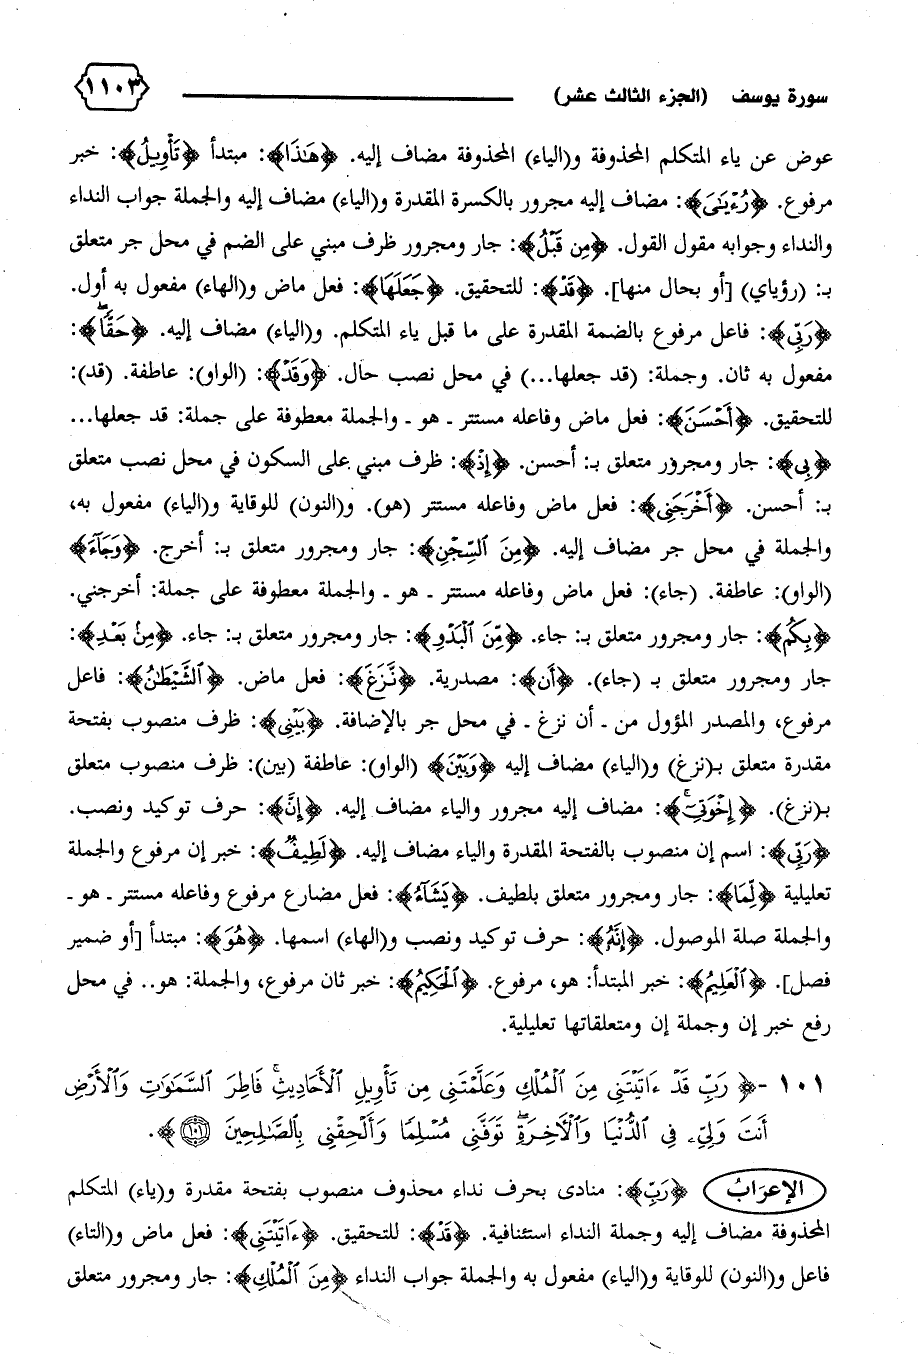 سورة يوسف (الجزء الثالث عشر)
١١٠٣
عوض عن ياء المتكلم المحذوفة و(الياء) المحذوفة مضاف إليه. ﴿هَٰذَا﴾: مبتدأ ﴿تَأْوِيلُ﴾: خبر
مرفوع. ﴿رُءْيَٰىَ﴾: مضاف إليه مجرور بالكسرة المقدرة و(الياء) مضاف إليه والجملة جواب النداء
والنداء وجوابه مقول القول. ﴿مِن قَبْلُ﴾: جار ومجرور ظرف مبني على الضم في محل جر متعلق
بـ: (رؤياي) [أو بحال منها]. ﴿قَدْ﴾: للتحقيق. ﴿جَعَلَهَا﴾: فعل ماض و(الهاء) مفعول به أول.
﴿رَبِّى﴾: فاعل مرفوع بالضمة المقدرة على ما قبل ياء المتكلم. و(الياء) مضاف إليه. ﴿حَقًّاۖ﴾:
مفعول به ثان. وجملة: (قد جعلها...) في محل نصب حال. ﴿وَقَدْ﴾: (الواو): عاطفة. (قد):
للتحقيق. ﴿أَحْسَنَ﴾: فعل ماض وفاعله مستتر ـ هو ـ والجملة معطوفة على جملة: قد جعلها...
﴿بِى﴾: جار ومجرور متعلق بـ: أحسن. ﴿إِذْ﴾: ظرف مبني على السكون في محل نصب متعلق
بـ: أحسن. ﴿أَخْرَجَنِى﴾: فعل ماض وفاعله مستتر (هو). و(النون) للوقاية و(الياء) مفعول به،
والجملة في محل جر مضاف إليه. ﴿مِنَ ٱلسِّجْنِ﴾: جار ومجرور متعلق بـ: أخرج. ﴿وَجَآءَ﴾
(الواو): عاطفة. (جاء): فعل ماض وفاعله مستتر ـ هو ـ والجملة معطوفة على جملة: أخرجني.
﴿بِكُم﴾: جار ومجرور متعلق بـ: جاء. ﴿مِّنَ ٱلْبَدْوِ﴾: جار ومجرور متعلق بـ: جاء. ﴿مِنۢ بَعْدِ﴾:
جار ومجرور متعلق بـ (جاء). ﴿أَن﴾: مصدرية. ﴿نَّزَغَ﴾: فعل ماض. ﴿ٱلشَّيْطَٰنُ﴾: فاعل
مرفوع، والمصدر المؤول من ـ أن نزغ ـ في محل جر بالإضافة. ﴿بَيْنِى﴾: ظرف منصوب بفتحة
مقدرة متعلق بـ(نزغ) و(الياء) مضاف إليه ﴿وَبَيْنَ﴾ (الواو): عاطفة (بين): ظرف منصوب متعلق
بـ(نزغ). ﴿إِخْوَتِىٓۚ﴾: مضاف إليه مجرور والياء مضاف إليه. ﴿إِنَّ﴾: حرف توكيد ونصب.
﴿رَبِّى﴾: اسم إن منصوب بالفتحة المقدرة والياء مضاف إليه. ﴿لَطِيفٌ﴾: خبر إن مرفوع والجملة
تعليلية ﴿لِّمَا﴾: جار ومجرور متعلق بلطيف. ﴿يَشَآءُ﴾: فعل مضارع مرفوع وفاعله مستتر ـ هو ـ
والجملة صلة الموصول. ﴿إِنَّهُ﴾: حرف توكيد ونصب و(الهاء) اسمها. ﴿هُوَ﴾: مبتدأ [أو ضمير
فصل]. ﴿ٱلْعَلِيمُ﴾: خبر المبتدأ: هو، مرفوع. ﴿ٱلْحَكِيمُ﴾: خبر ثان مرفوع، والجملة: هو.. في محل
رفع خبر إن وجملة إن ومتعلقاتها تعليلية.
١٠١ -﴿ رَبِّ قَدْ ءَاتَيْتَنِى مِنَ ٱلْمُلْكِ وَعَلَّمْتَنِى مِن تَأْوِيلِ ٱلْأَحَادِيثِۚ فَاطِرَ ٱلسَّمَٰوَٰتِ وَٱلْأَرْضِ
أَنتَ وَلِىِّۦ فِى ٱلدُّنْيَا وَٱلْءَاخِرَةِۖ تَوَفَّنِى مُسْلِمًا وَأَلْحِقْنِى بِٱلصَّٰلِحِينَ ١٠١﴾.
الإعرابُ ﴿رَبِّ﴾: منادى بحرف نداء محذوف منصوب بفتحة مقدرة و(ياء) المتكلم
المحذوفة مضاف إليه وجملة النداء استئنافية. ﴿قَدْ﴾: للتحقيق. ﴿ءَاتَيْتَنِى﴾: فعل ماض و(التاء)
فاعل و(النون) للوقاية و(الياء) مفعول به والجملة جواب النداء ﴿مِنَ ٱلْمُلْكِ﴾: جار ومجرور متعلق